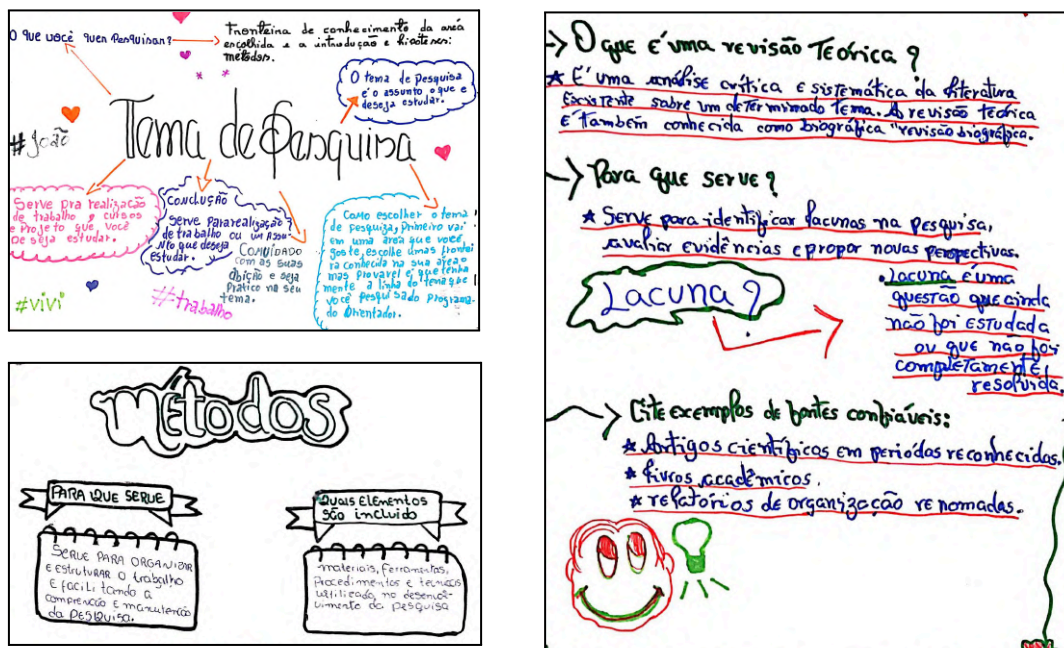 O que você quer Pesquisar?
Fronteira de conhecimento da area
escolhida e a introdução e hipoteses:
métodos.
O tema de pesquisa
é o assunto o que e
deseja estudar.
Tema de Pesquisa
#João
Serve pra realização
de trabalho, cursos
e Projeto que, você
deseja estudar.
Conclução
Serve Para realização
de trabalho ou um Assu-
Nto que deseja
estudar.
COMUIDADO
com as suas
dição e seja
Pratico na seu
tema.
Como escolher o tema
de pesquiza, Primeiro vai
em uma area que você,
goste, escolhe umas frontei
ra conhecida na sua area o
mas provarel é que tenha
mente a linha do tema que
você pesquisado Programa-
do Orientador.
#vivi
#trabalho
Métodos
PARA QUE SERVE
SERVE PARA ORGANIZAR
E ESTRUTURAR O trabalho
E facilitando a
comprencão E manutencão
da PESQUISA.
Quais Elementos
São incluido
materiais, ferramentas,
Procedimentos e tecnicas
utilizado, no desenvol-
vimento da pesquisa
O que é uma revisão Teórica?
É uma análise crítica e sistemática da literatura
Existente sobre um determinado tema. A revisão teórica
é também conhecida como biográfica "revisão biográfica.
Para que serve?
Serve para identificar lacunas na pesquisa,
avaliar evidências e propor novas perspectivas.
Lacuna?
.Lacuna é uma
questão que ainda
não foi estudada
ou que não foi
completamente
resolvida.
Cite exemplos de fontes confiáveis:
Artigos científicos em períodos reconhecidos.
Livros acadêmicos.
relatórios de organização renomadas.